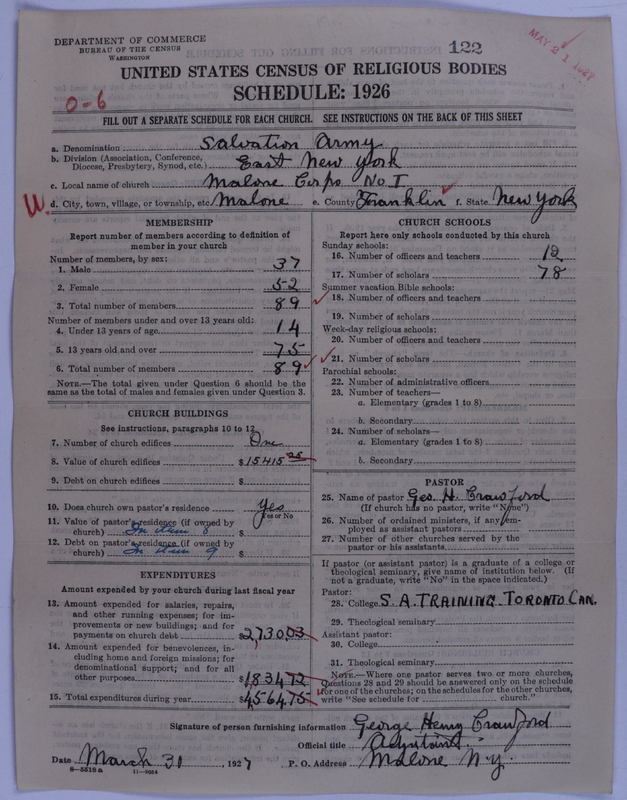 DEPARTMENT OF COMMERCE
BUREAU OF THE CENSUS
WASHINGTON
122
UNITED STATES CENSUS OF RELIGIOUS BODIES
SCHEDULE: 1926
O-6
FILL OUT A SEPARATE SCHEDULE FOR EACH CHURCH. SEE INSTRUCTIONS ON THE BACK OF THIS SHEET
a. Denomination Salvation Army
b. Division (Association, Conference, Diocese, Presbytery, Synod, etc.) East New York
c. Local name of church Malone Corps No I
W. d. City, town, village, or township, etc. Malone e. County Franklin f. State New York
MEMBERSHIP
Report number of members according to definition of
member in your church
Number of members, by sex:
1. Male 37
2. Female 52
3. Total number of members 89
Number of members under and over 13 years old:
4. Under 13 years of age 14
5. 13 years old and over 75
6. Total number of members 89
NOTE.—The total given under Question 6 should be the
same as the total of males and females given under Question 3.
CHURCH BUILDINGS
See instructions, paragraphs 10 to 12
7. Number of church edifices One
8. Value of church edifices $15415 25
9. Debt on church edifices $
10. Does church own pastor's residence Yes
Yes or No
11. Value of pastor's residence (if owned by
church) In item 8 $
12. Debt on pastor's residence (if owned by
church) In item 9 $
EXPENDITURES
Amount expended by your church during last fiscal year
13. Amount expended for salaries, repairs,
and other running expenses; for im-
provements or new buildings; and for
payments on church debt $2,730.03
14. Amount expended for benevolences, in-
cluding home and foreign missions; for
denominational support; and for all
other purposes $183472
15. Total expenditures during year $456475
CHURCH SCHOOLS
Report here only schools conducted by this church
Sunday schools:
16. Number of officers and teachers 12
17. Number of scholars 78
Summer vacation Bible schools:
18. Number of officers and teachers
19. Number of scholars
Week-day religious schools:
20. Number of officers and teachers
21. Number of scholars
Parochial schools:
22. Number of administrative officers
23. Number of teachers—
a. Elementary (grades 1 to 8)
b. Secondary
24. Number of scholars—
a. Elementary (grades 1 to 8)
b. Secondary
PASTOR
25. Name of pastor Geo. H. Crawford
(If church has no pastor, write "None")
26. Number of ordained ministers, if any, em-
ployed as assistant pastors
27. Number of other churches served by the
pastor or his assistants
If pastor (or assistant pastor) is a graduate of a college or
theological seminary, give name of institution below. (If
not a graduate, write "No" in the space indicated.)
Pastor:
28. College S.A. TRAINING. TORONTO CAN.
29. Theological seminary
Assistant pastor:
30. College
31. Theological seminary
NOTE.—Where one pastor serves two or more churches,
Questions 28 and 29 should be answered only on the schedule
for one of the churches; on the schedules for the other churches,
write "See schedule for church."
Signature of person furnishing information George Henry Crawford
Official title Adjutant.
Date March 31, 1927 P. O. Address Malone N.y.
8-5518a 11-9664